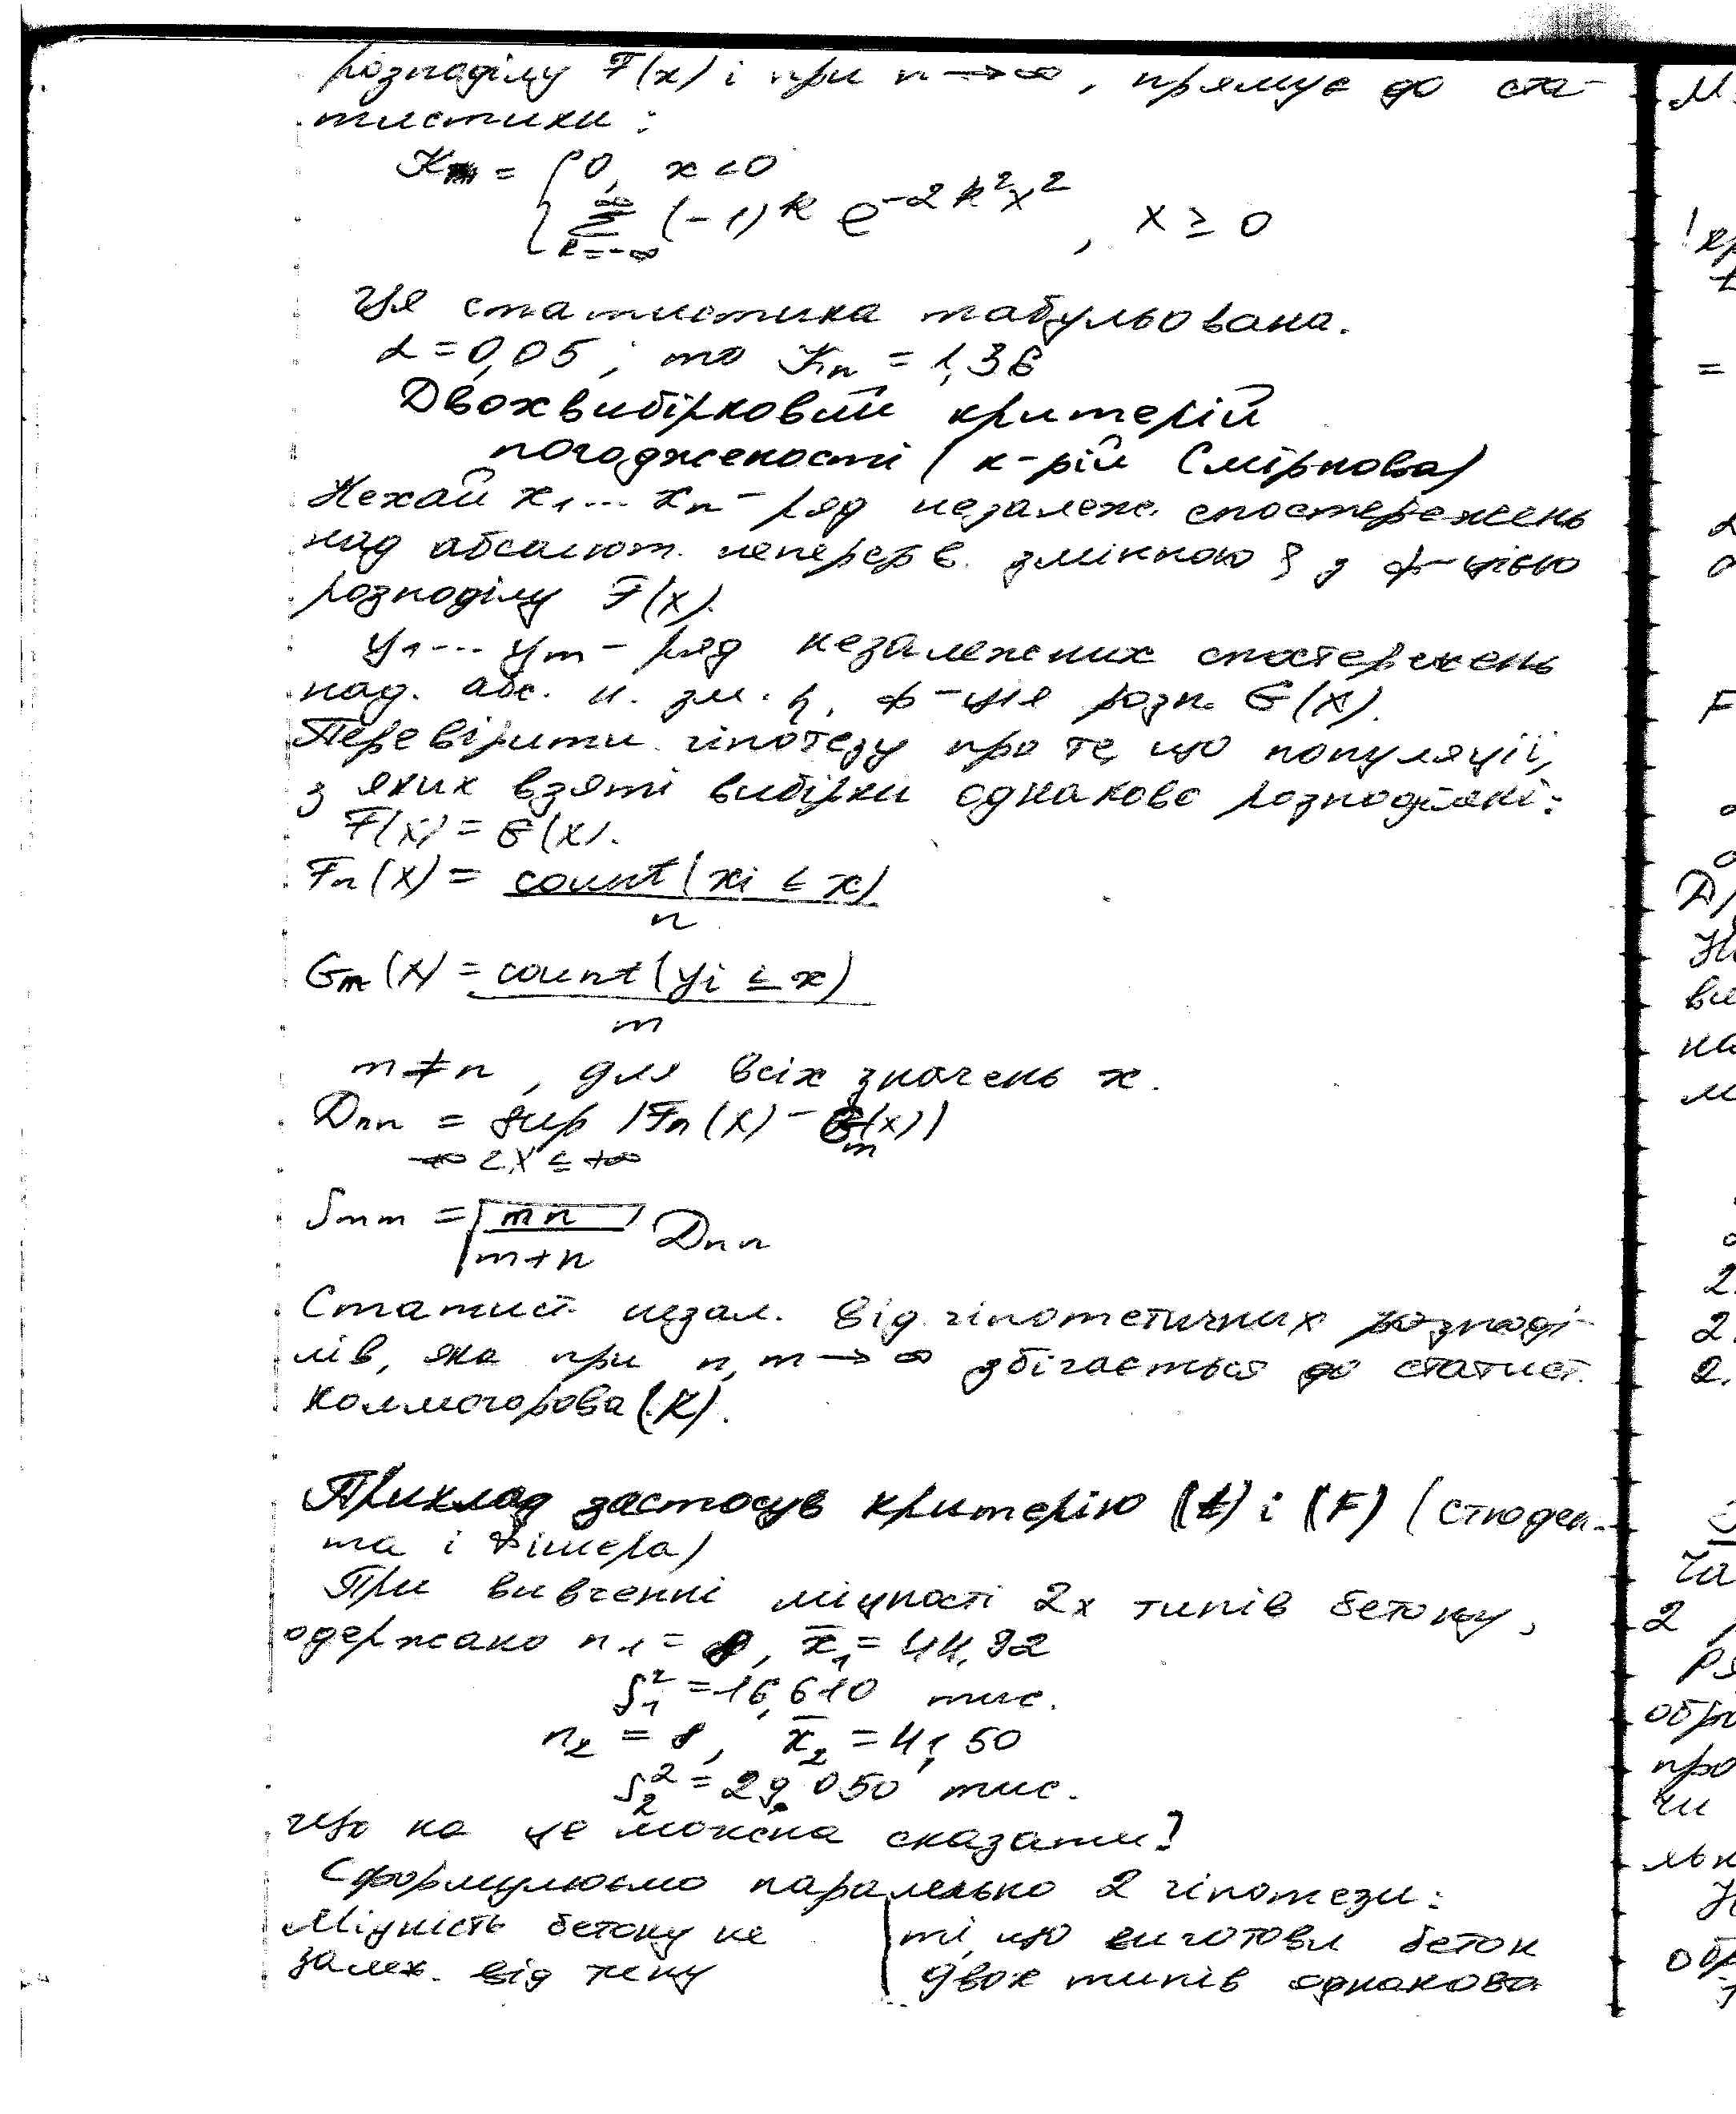 розподілу F(x) і при n → ∞, прямує до ста-
тистики:
K = { 0, x < 0
∞ Σ k=-∞ (-1)^k e^{-2k²x²}, x ≥ 0
Ця статистика табульована.
α = 0,05; то Kn = 1,36
Двохвибірковий критерій
погодженості (к-рій Смірнова)
Нехай x₁... xₙ - ряд незалеж. спостережень
над абсолют. неперерв. змінною ξ з ф-цією
розподілу F(x).
y₁... yₘ - ряд незалежних спостережень
над. абс. н. зм. η, ф-ція розп. G(x).
Перевірити гіпотезу про те, що популяції,
з яких взяті вибірки однаково розподілені:
F(x) = G(x).
Fn(x) = count(xi ≤ x) / n
Gm(x) = count(yi ≤ x) / m
m ≠ n, для всіх значень x.
Dmn = sup |Fn(x) - Gm(x)|
-∞ < x ≤ +∞
Smn = √(mn / m+n) Dmn
Статист. незал. від гіпотетичних розподі-
лів, яка при n, m → ∞ збігається до статист.
Колмогорова (K).
Приклад застосув критерію (t) і (F) (Стюден-
та і Фішера)
При вивченні міцності 2х типів бетону,
одержано n₁ = 8, x̄₁ = 44,92
S₁² = 16,610 тис.
n₂ = 8, x̄₂ = 41,50
S₂² = 29,050 тис.
Що на це можна сказати?
Сформулюємо паралельно 2 гіпотези:
Міцність бетону не | ті, що виготовл бетон
залеж. від типу | двох типів однакова